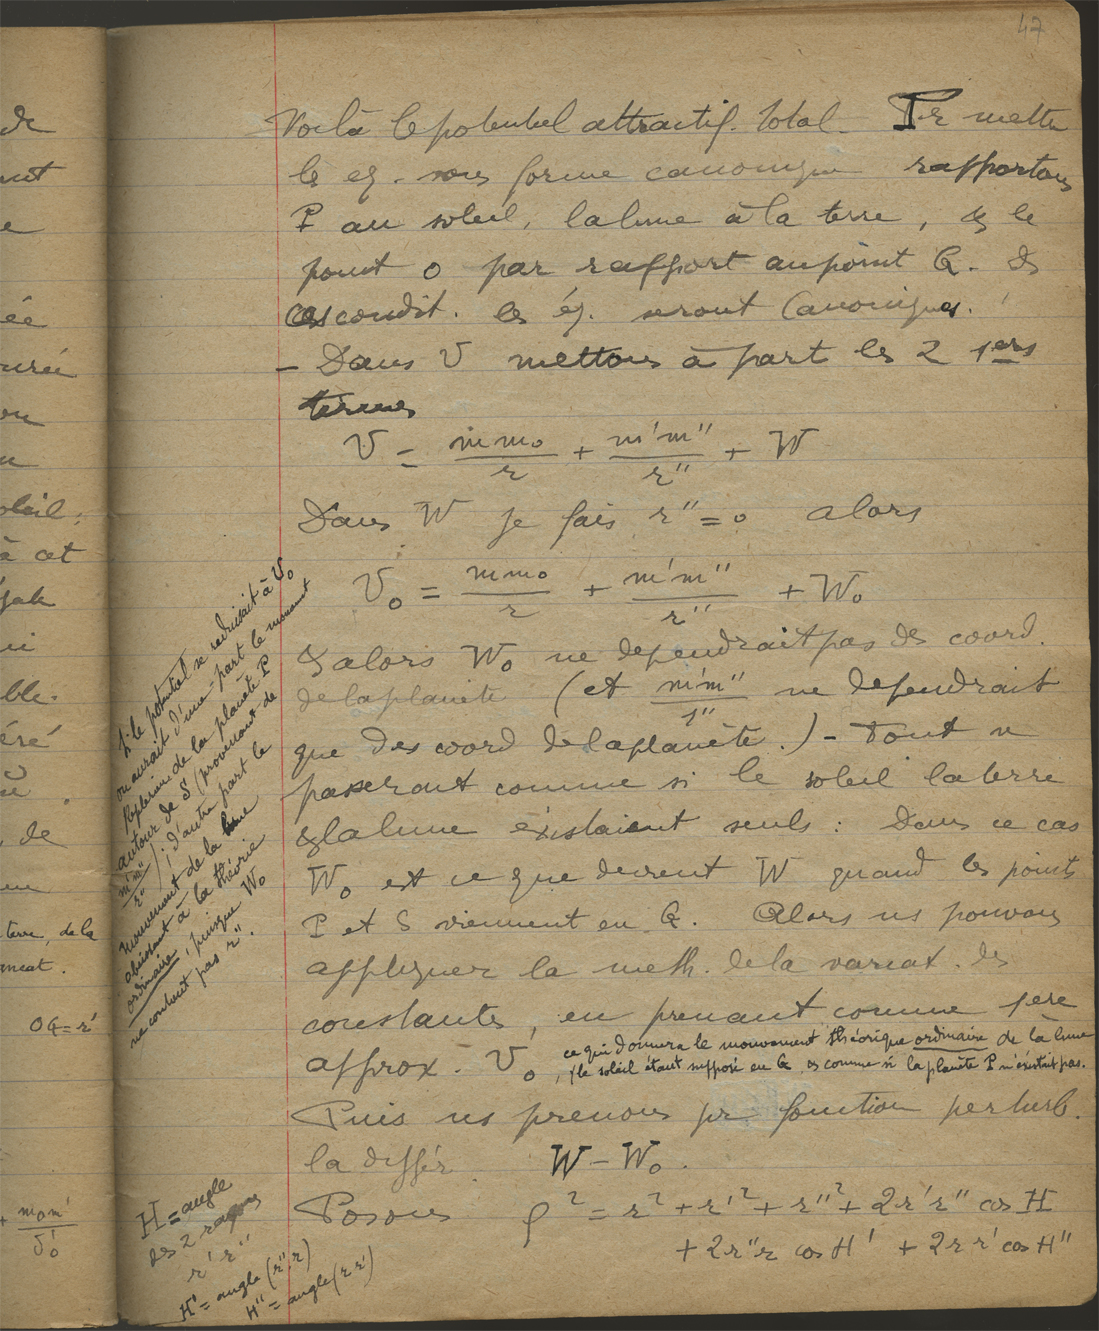 47
Voilà le potentiel attractif total. Pr mettre
les eq. sous forme canonique rapportons
P au soleil, la lune à la terre, & le
point O par rapport au point G. Ds
ces condit. les éq. seront canoniques.
- Dans V mettons à part les 2 1ers
termes
V = m m₀ / r + m'm'' / r'' + W
Dans W je fais r'' = 0 alors
V₀ = m m₀ / r + m'm'' / r'' + W₀
& alors W₀ ne dépendrait pas des coord.
de la planète (et m'm'' / r'' ne dépendrait
que des coord de la planète.) - Tout se
passerait comme si le soleil la terre
& la lune existaient seuls : Dans ce cas
W₀ est ce que devient W quand les points
P et S viennent en G. Alors ns pouvons
appliquer la meth. de la variat. des
constantes, en prenant comme 1ere
approx. V₀, ce qui donnera le mouvement théorique ordinaire de la lune
(le soleil étant supposé en G, & comme si la planète P n'existait pas.
Puis ns prenons pr fonction perturb.
la differ W - W₀.
Posons ρ² = r² + r'² + r''² + 2r'r'' cos H
+ 2r''r cos H' + 2r r' cos H''
Si le potentiel se reduisait à V₀
on aurait d'une part le mouvement
Keplerien de la planète P
autour de S (provenant de
m'm'' / r'') ; d'autre part le
mouvement de la lune
obéissant à la théorie
ordinaire, puisque W₀
ne contient pas r''.
H = angle
des 2 rayons
r' r''
H' = angle (r'', r)
H'' = angle (r r')
de
e
ée
on
oleil ;
à cet
ble.
éré
, de
terre, de la
OG = r'
+ m₀m' / δ'₀